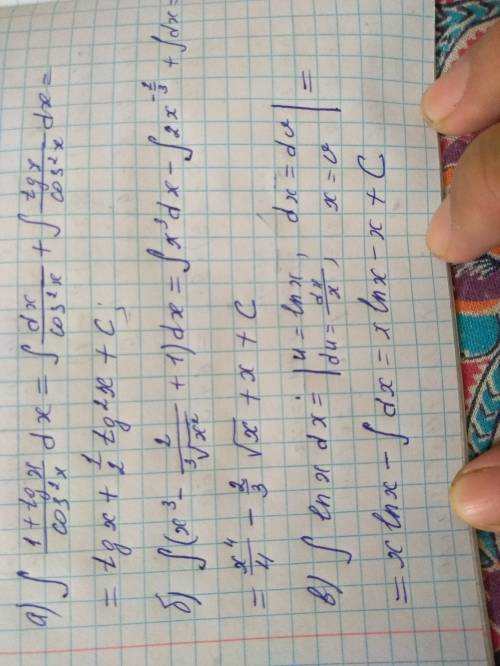 а) ∫ (1+tg x)/(cos²x) dx = ∫ dx/(cos²x) + ∫ (tg x)/(cos²x) dx =
= tg x + 1/2 tg²x + C;
б) ∫ (x³ - 2/(³√x²) + 1) dx = ∫ x³ dx - ∫ 2x^(-2/3) + ∫ dx =
= x⁴/4 - 2/3 √x + x + C
в) ∫ ln x dx = | u = ln x, dx = dv
du = dx/x, x = v | =
= x ln x - ∫ dx = x ln x - x + C